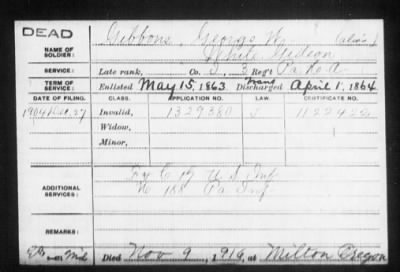 DEAD
Gibbons, George W. (alias)
NAME OF SOLDIER:
White Gideon
SERVICE: Late rank, Co. 3 Reg't Pa
TERM OF SERVICE: Enlisted May 15, 1863 Trans Discharged April 1, 1864
DATE OF FILING. CLASS. APPLICATION NO. LAW. CERTIFICATE NO.
1904 Dec. 27 Invalid, 1329380 1122422
Widow,
Minor,
U.S. Inf
ADDITIONAL SERVICES: 188 Pa Inf
REMARKS:
Died Nov 9, 1916, at Milton Oregon